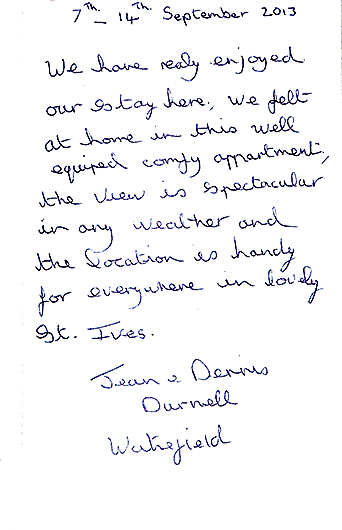 7th – 14th September 2013
We have realy enjoyed
our stay here, we felt
at home in this well
equiped comfy appartment,
the view is spectacular
in any weather and
the location is handy
for everywhere in lovely
St. Ives.
Jean & Dennis
Durnell
Wakefield